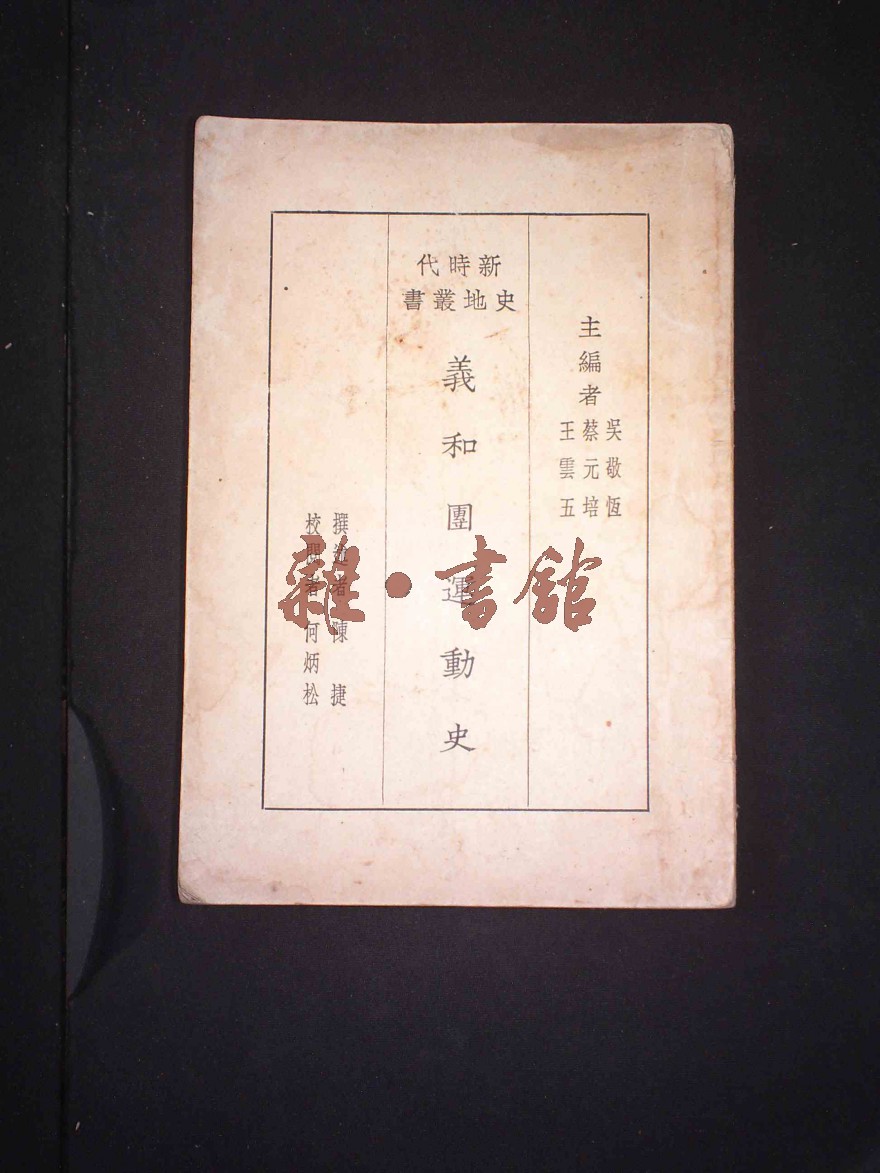 主編者
吳敬恆
蔡元培
王雲五
新時代
史地叢書
義和團運動史
撰述者 陳捷
校閱者 何炳松
雜·書館